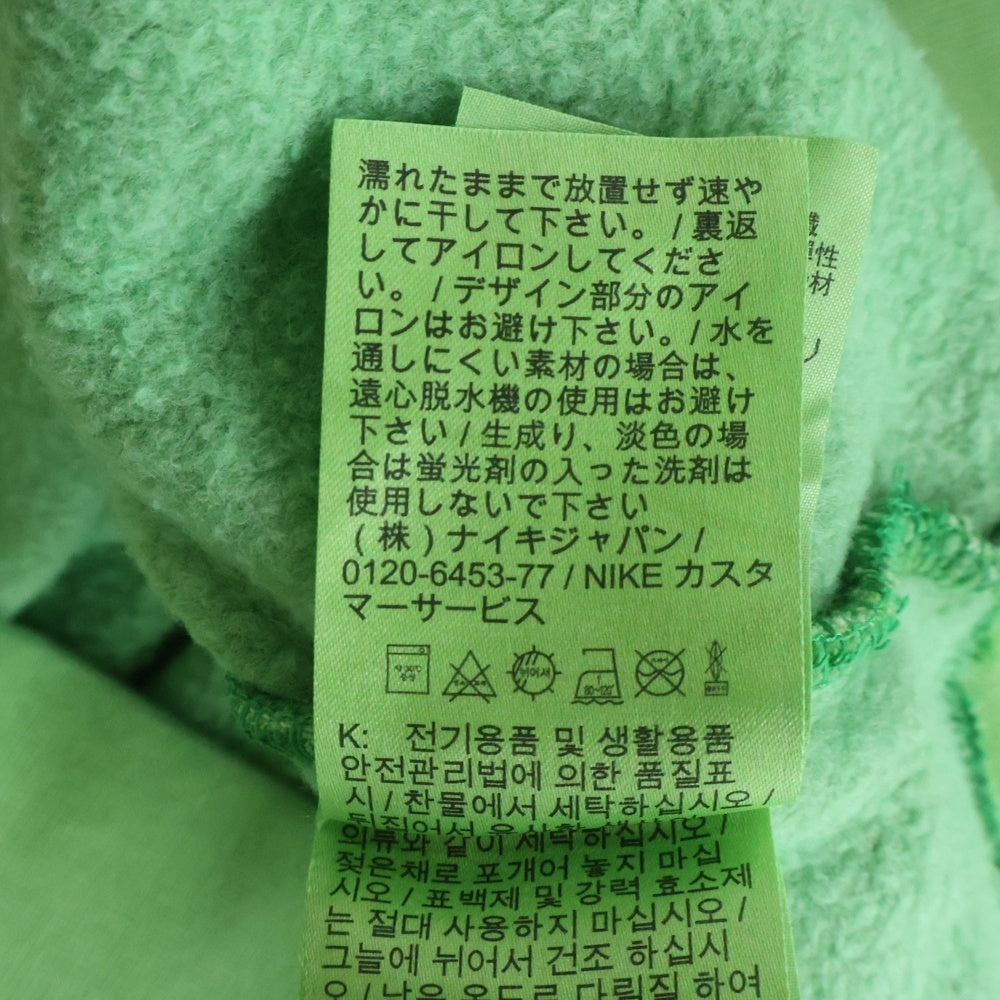 濡れたままで放置せず速や
かに干して下さい。/裏返
してアイロンしてくださ
い。/デザイン部分のアイ
ロンはお避け下さい。/水を
通しにくい素材の場合は、
遠心脱水機の使用はお避け
下さい/生成り、淡色の場
合は蛍光剤の入った洗剤は
使用しないで下さい
(株)ナイキジャパン/
0120-6453-77 / NIKE カスタ
マーサービス
80~120
K: 전기용품 및 생활용품
안전관리법에 의한 품질표
시 / 찬물에서 세탁하십시오 /
의류와 같이 세탁하십시오 /
젖은채로 포개어 놓지 마십
시오 / 표백제 및 강력 효소제
는 절대 사용하지 마십시오 /
그늘에 뉘어서 건조 하십시
오 / 낮은 온도로 다림질 하여
性
材